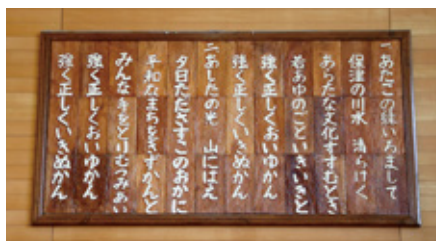 一 あたごの緑いろまして
保津の川水 清らけく
あらたな文化すすむとき
若あゆのごといきいきと
強く正しくおいゆかん
強く正しくいきぬかん
二 あしたの光 山にはえ
夕日たたさすこのおかに
平和なまちをきずかんと
みんな手をとりむつみあい
強く正しくおいゆかん
強く正しくいきぬかん